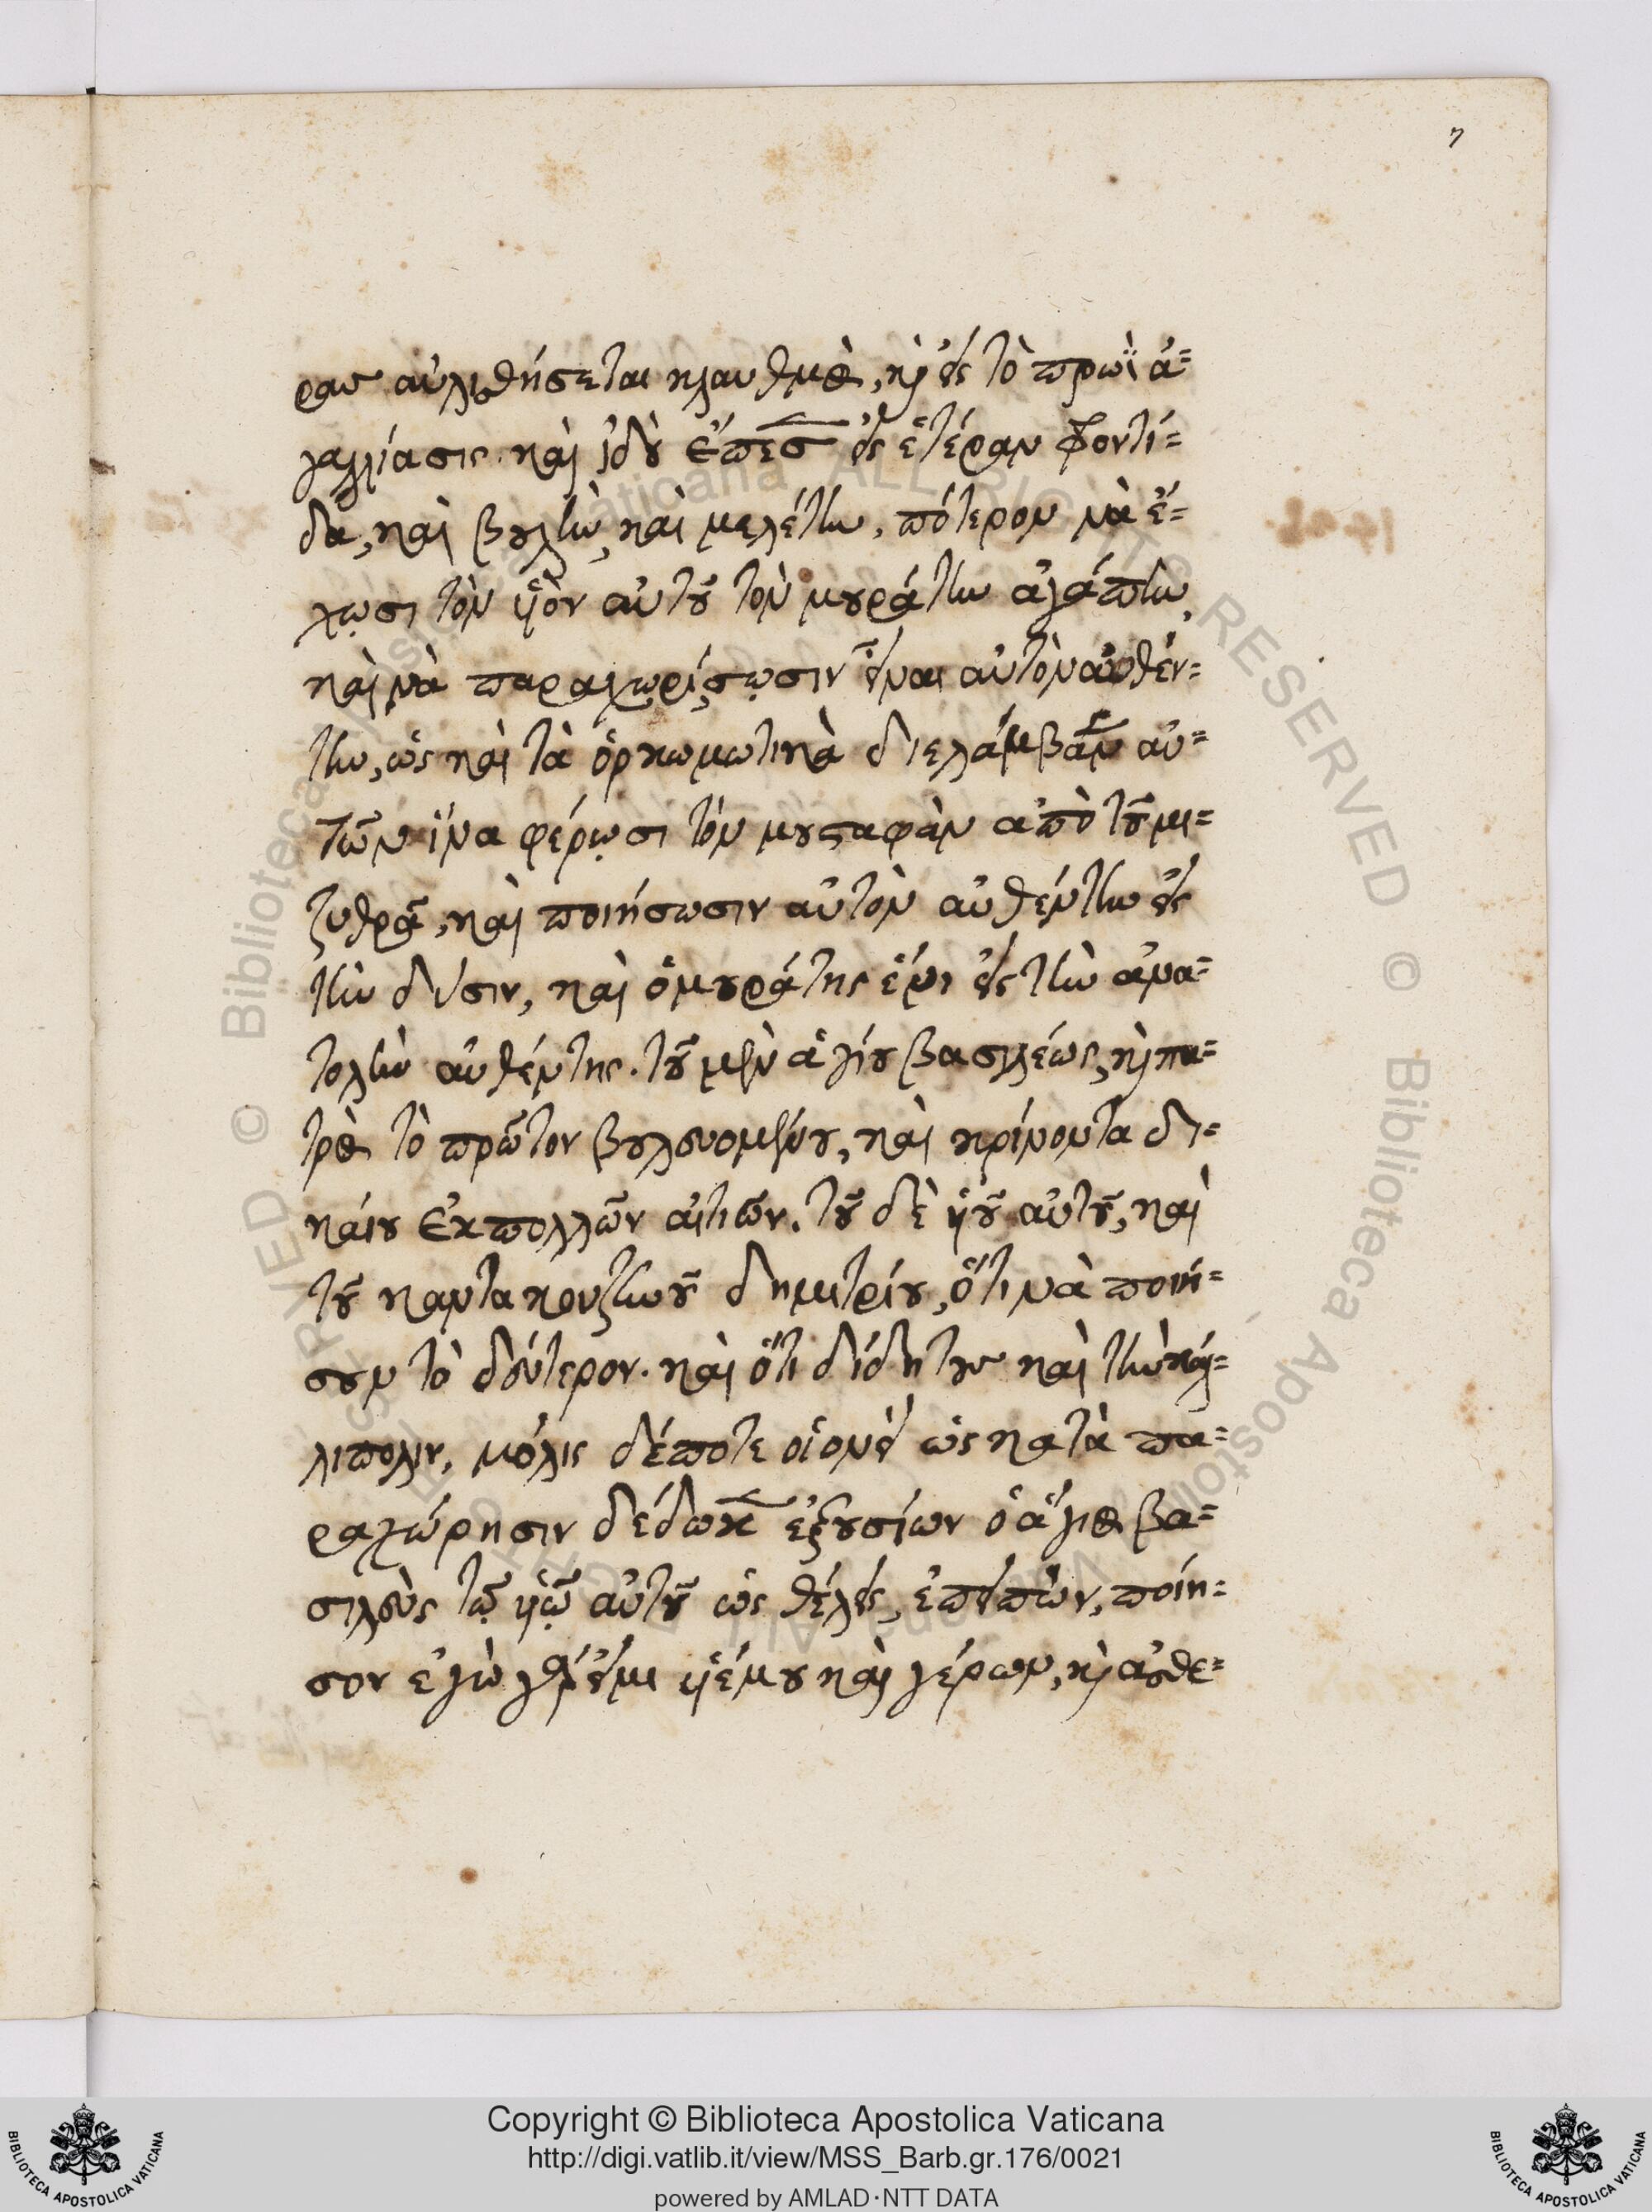 7
ραν αὐλισθήσεται κλαυθμὸς, κỳ εἰς τὸ πρωῒ ἀ=
γαλλίασις. καὶ ἰδοὺ ἔπεσ εἰς ἑτέραν φροντί=
δα, καὶ βουλὴν, καὶ μελέτην, πότερον νὰ ἔ=
χωσι τὸν ὑιὸν αὐτοῦ τὸν μουράτην ἀγάπην,
καὶ νὰ παραχωρίσωσιν εἶναι αὐτὸν αὐθέν=
την, ὡς καὶ τὰ ὁρκωμωτικὰ διελάμβαν αὐ=
τῶν ἵνα φέρωσι τὸν μουσταφὰν ἀπὸ τοῦ μι=
ζυθρᾶ, καὶ ποιήσωσιν αὐτὸν αὐθέντην εἰς
τὴν δύσιν, καὶ ὁ μουράτης ἔνι εἰς τὴν ἀνα=
τολὴν αὐθέντης. τοῦ μὲν ἁγίου βασιλέως, κỳ πα=
τρὸς τὸ πρῶτον βουλευομένου, καὶ κρίνοντα δι=
καίου ἐκ πολλῶν αἰτιῶν. τοῦ δὲ ὑιοῦ αὐτοῦ, καὶ
τοῦ καντακουζηνοῦ δημιτρίου, ὅτι νὰ ποιή=
σουν τὸ δεύτερον. καὶ ὅτι δίδη τουν καὶ τὴν καλ=
λιπολιν, μόλις δέποτε οἱονεὶ ὡς κατὰ πα=
ραχώρησιν δέδωκ ἐξουσίων ὁ ἅγιος βα=
σιλεὺς τῷ ὑιῷ αὐτοῦ ὡς θέλεις, ἐπειπὼν, ποίη=
σον ἐγὼ γὰρ εἰμι ὑιέ μου καὶ γέρων, κỳ ἀσθε=
Copyright © Biblioteca Apostolica Vaticana
http://digi.vatlib.it/view/MSS_Barb.gr.176/0021
powered by AMLAD·NTT DATA